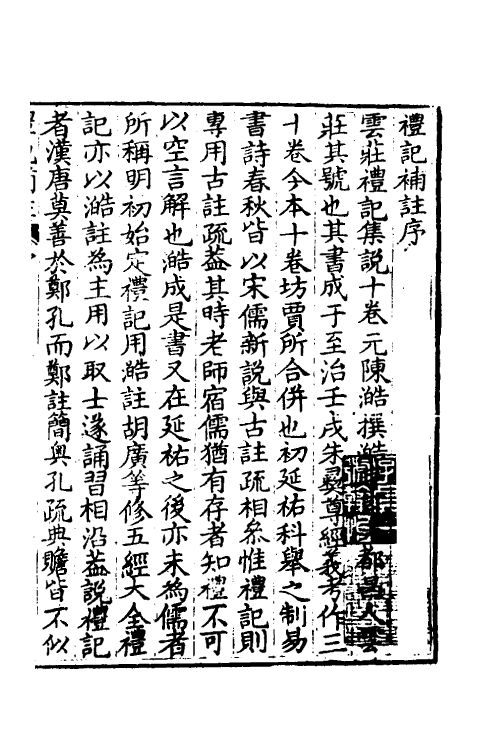 禮記補註序
雲莊禮記集說十卷元陳澔撰澔 都昌人雲
莊其號也其書成于至治壬戌朱彛尊經義考作三
十卷今本十卷坊賈所合併也初延祐科舉之制易
書詩春秋皆以宋儒新說與古註疏相叅惟禮記則
專用古註疏葢其時老師宿儒猶有存者知禮不可
以空言解也澔成是書又在延祐之後亦未為儒者
所稱明初始定禮記用澔註胡廣等修五經大全禮
記亦以澔註為主用以取士遂誦習相沿葢說禮記
者漢唐莫善於鄭孔而鄭註簡奥孔疏典贍皆不似